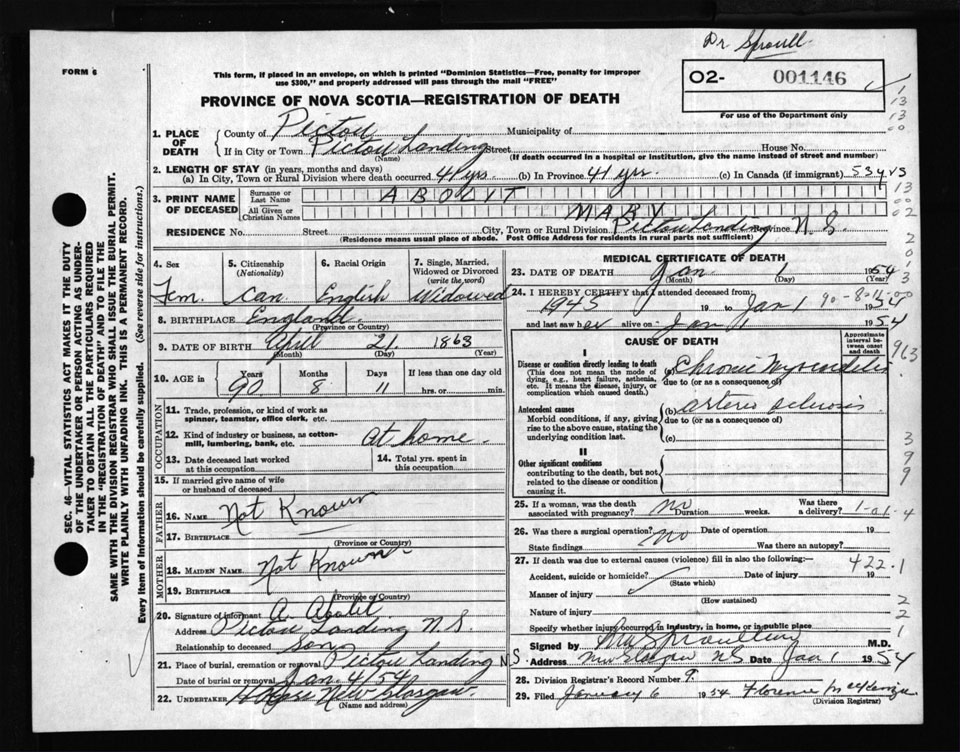 Dr Sproull
FORM 6
This form, if placed in an envelope, on which is printed "Dominion Statistics—Free, penalty for improper
use $300," and properly addressed will pass through the mail "FREE"
O2- 001146
For use of the Department only
PROVINCE OF NOVA SCOTIA—REGISTRATION OF DEATH
1. PLACE OF DEATH
County of Pictou Municipality of
If in City or Town Pictou Landing Street House No.
(Name) (If death occurred in a hospital or institution, give the name instead of street and number)
2. LENGTH OF STAY (in years, months and days)
(a) In City, Town or Rural Division where death occurred 41 yrs. (b) In Province 41 yrs. (c) In Canada (if immigrant) 53 yrs
3. PRINT NAME OF DECEASED
Surname or Last Name ABOLIT
All Given or Christian Names MARY
RESIDENCE No. Street City, Town or Rural Division Pictou Landing Province N.S.
(Residence means usual place of abode. Post Office Address for residents in rural parts not sufficient)
4. Sex Fem.
5. Citizenship (Nationality) Can.
6. Racial Origin English
7. Single, Married, Widowed or Divorced (write the word) Widowed
8. BIRTHPLACE England
(Province or Country)
9. DATE OF BIRTH April 21. 1863
(Month) (Day) (Year)
10. AGE in Years 90 Months 8 Days 11 If less than one day old
hrs. or min.
OCCUPATION
11. Trade, profession, or kind of work as
spinner, teamster, office clerk, etc.
12. Kind of industry or business, as cotton-
mill, lumbering, bank, etc. At home.
13. Date deceased last worked
at this occupation
14. Total yrs. spent in
this occupation
15. If married give name of wife
or husband of deceased
FATHER
16. NAME Not Known
17. BIRTHPLACE
(Province or Country)
MOTHER
18. MAIDEN NAME Not Known
19. BIRTHPLACE
(Province or Country)
20. Signature of informant A. Abolit
Address Pictou Landing N.S.
Relationship to deceased son
21. Place of burial, cremation or removal Pictou Landing N.S.
Date of burial or removal Jan. 4/54
22. UNDERTAKER New Glasgow.
(Name and address)
MEDICAL CERTIFICATE OF DEATH
23. DATE OF DEATH Jan. 1 1954
(Month) (Day)
24. I HEREBY CERTIFY that I attended deceased from:
1945 19 to Jan 1 1954
and last saw her alive on Jan 1 1954
90-8-11-00
CAUSE OF DEATH
Approximate interval between onset and death
I
Disease or condition directly leading to death
(This does not mean the mode of
dying, e.g., heart failure, asthenia,
etc. It means the disease, injury, or
complication which caused death.)
(a) Chronic Myocarditis
due to (or as a consequence of)
Antecedent causes
Morbid conditions, if any, giving
rise to the above cause, stating the
underlying condition last.
(b) arterio sclerosis
due to (or as a consequence of)
(c)
II
Other significant conditions
contributing to the death, but not
related to the disease or condition
causing it.
25. If a woman, was the death
associated with pregnancy? no Duration weeks. Was there
a delivery? 1-01-4
26. Was there a surgical operation? no Date of operation 19
State findings Was there an autopsy?
27. If death was due to external causes (violence) fill in also the following:— 422.1
Accident, suicide or homicide? Date of injury 19
(State which)
Manner of injury
(How sustained)
Nature of injury
Specify whether injury occurred in industry, in home, or in public place
Signed by M.D.
Address New Glasgow NS Date Jan 1 1954
28. Division Registrar's Record Number 9.
29. Filed January 6 1954 Florence MacKenzie
(Division Registrar)
SEC. 46—VITAL STATISTICS ACT MAKES IT THE DUTY
OF THE UNDERTAKER OR PERSON ACTING AS UNDER-
TAKER TO OBTAIN ALL THE PARTICULARS REQUIRED
IN THE "REGISTRATION OF DEATH" AND TO FILE THE
SAME WITH THE DIVISION REGISTRAR WHO SHALL ISSUE THE BURIAL PERMIT.
WRITE PLAINLY WITH UNFADING INK. THIS IS A PERMANENT RECORD.
Every item of information should be carefully supplied. (See reverse side for instructions.)
1
13
13
00
13
00
02
2
0
1
3
963
3
9
9
2
2
1